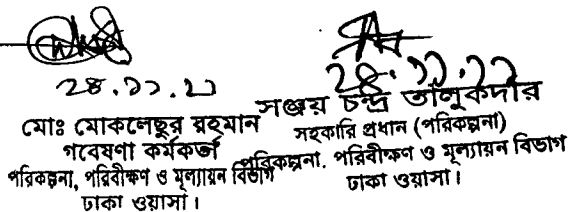 ২৪.১১.২১
মোঃ মোকলেছুর রহমান
গবেষণা কর্মকর্তা
পরিকল্পনা, পরিবীক্ষণ ও মূল্যায়ন বিভাগ
ঢাকা ওয়াসা।
২৪.১১.২১
সঞ্জয় চন্দ্র তালুকদার
সহকারি প্রধান (পরিকল্পনা)
পরিকল্পনা, পরিবীক্ষণ ও মূল্যায়ন বিভাগ
ঢাকা ওয়াসা।